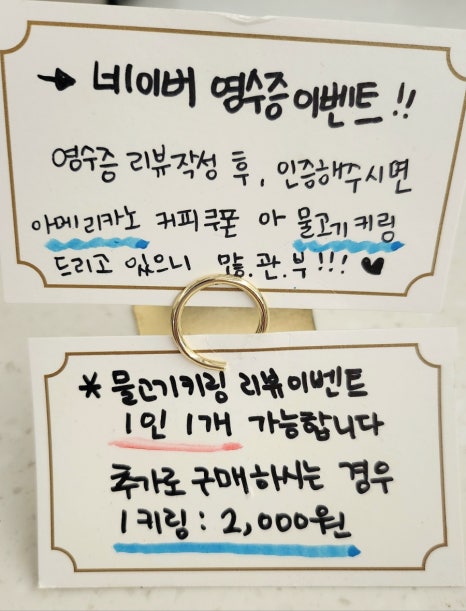 → 네이버 영수증이벤트!!
영수증 리뷰작성 후, 인증해주시면
아메리카노 커피쿠폰 아 물고기키링
드리고 있으니 많.관.부!!! ♥
* 물고기키링 리뷰이벤트
1인 1개 가능합니다
추가로 구매하시는 경우
1키링 : 2,000원